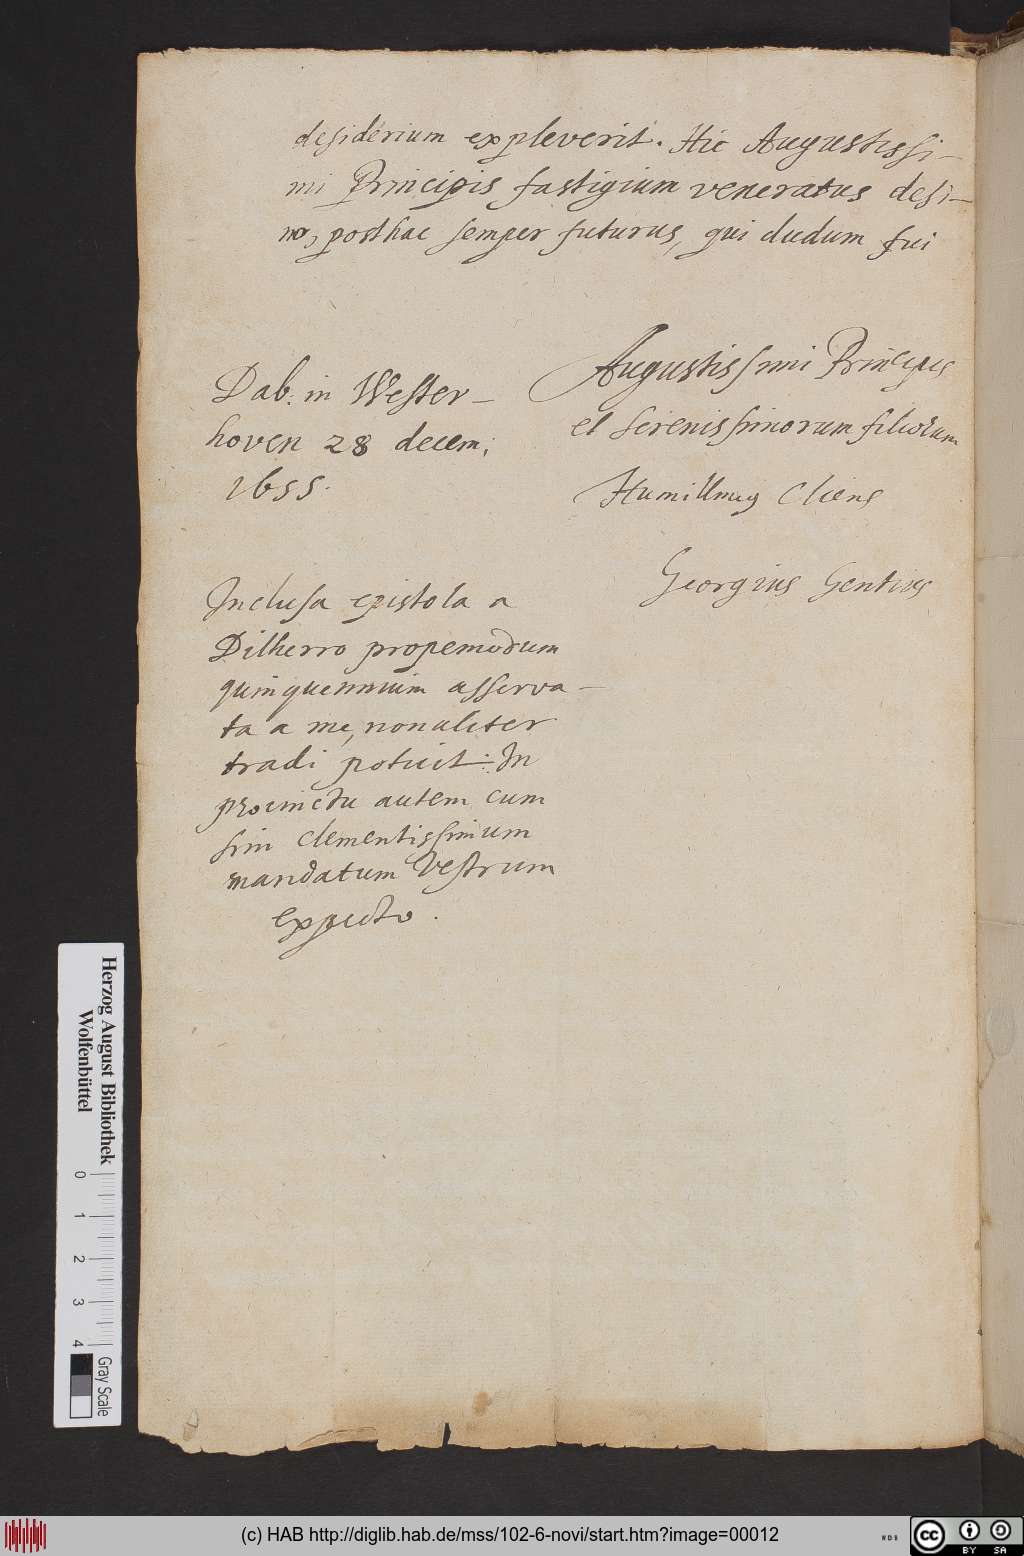 desiderium expleverit. Hic Augustissi-
mi Principis fastigium veneratus desi-
no, posthac semper futurus, qui dudum fui
Augustissimi Principis
et serenissimorum filiorum
Humillimus Cliens
Georgius Gentius
Dab: in Wester-
hoven 28 decem;
1655.
Inclusa epistola a
Dilherro propemodum
quinquennium asserva-
ta a me, non aliter
tradi potuit: In
procinctu autem cum
sim clementissimum
mandatum Vestrum
expecto.
Herzog August Bibliothek
Wolfenbüttel
0 1 2 3 4
Gray Scale
(c) HAB http://diglib.hab.de/mss/102-6-novi/start.htm?image=00012
WDB
cc BY SA